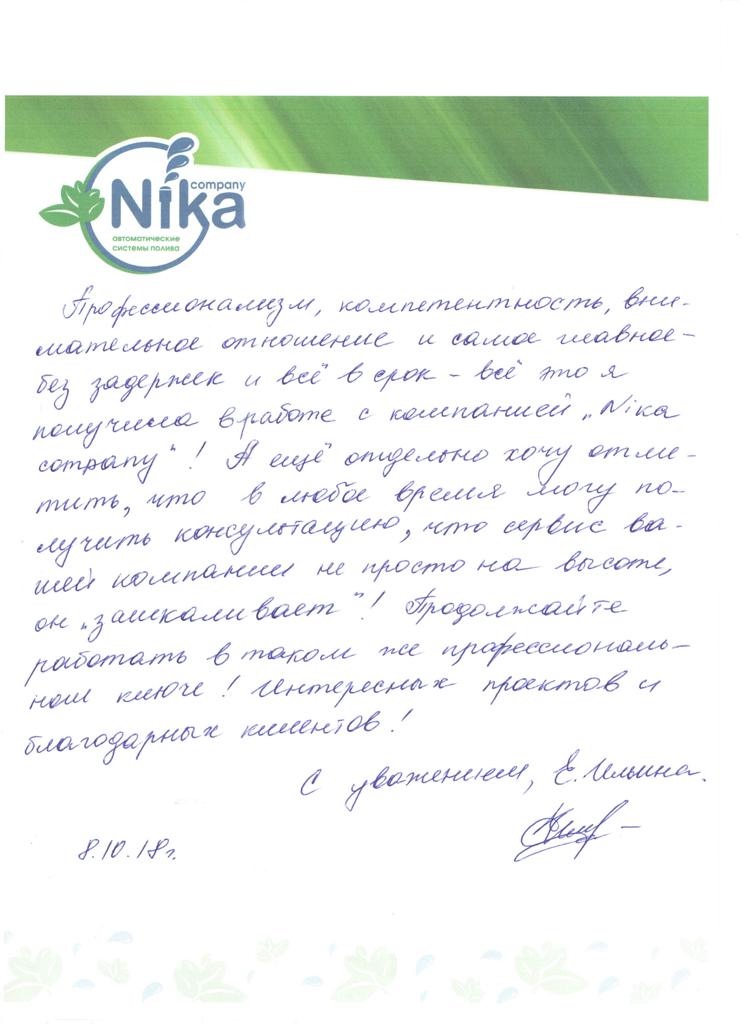 Nika company
автоматические
системы полива
Профессионализм, компетентность, вни-
мательное отношение и самое главное -
без задержек и всё в срок - всё это я
получила в работе с компанией „Nika
company"! А ещё отдельно хочу отме-
тить, что в любое время могу по-
лучить консультацию, что сервис ва-
шей компании не просто на высоте,
он „зашкаливает"! Продолжайте
работать в таком же профессиональ-
ном ключе! Интересных проектов и
благодарных клиентов!
С уважением, Е. Ильина.
8.10.18г.